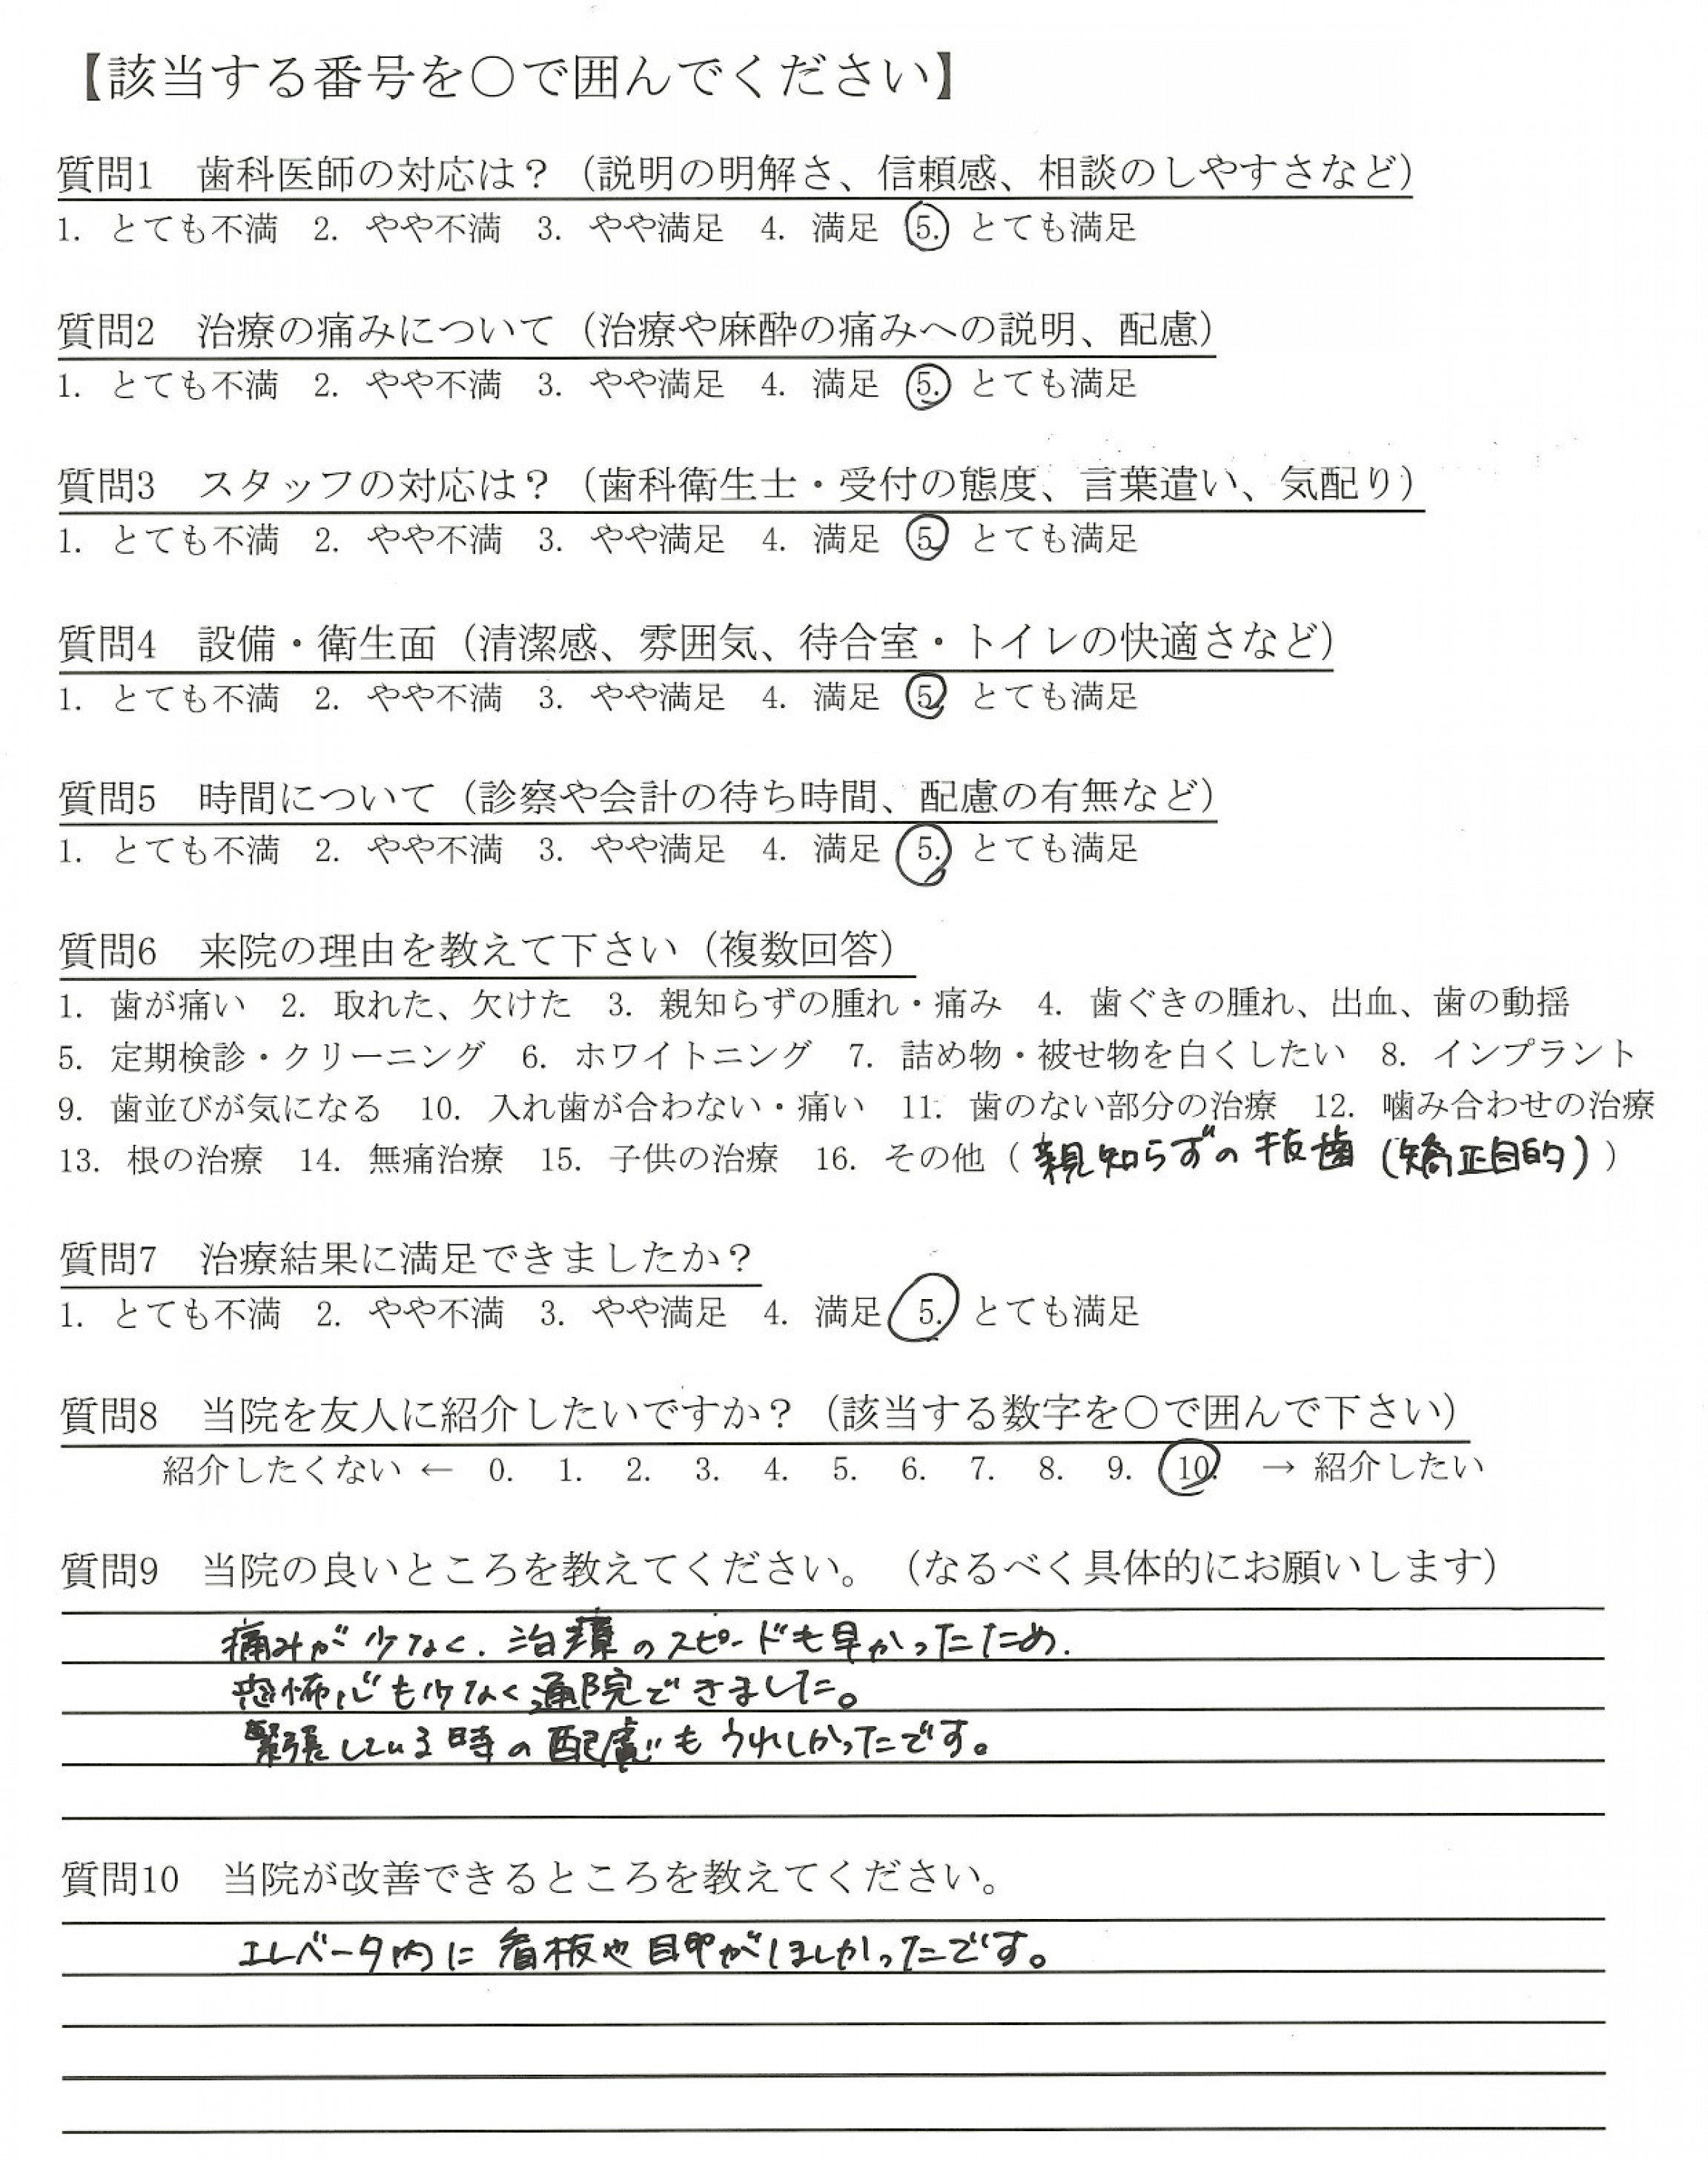 【該当する番号を〇で囲んでください】
質問1 歯科医師の対応は？（説明の明解さ、信頼感、相談のしやすさなど）
1. とても不満 2. やや不満 3. やや満足 4. 満足 5. とても満足
質問2 治療の痛みについて（治療や麻酔の痛みへの説明、配慮）
1. とても不満 2. やや不満 3. やや満足 4. 満足 5. とても満足
質問3 スタッフの対応は？（歯科衛生士・受付の態度、言葉遣い、気配り）
1. とても不満 2. やや不満 3. やや満足 4. 満足 5. とても満足
質問4 設備・衛生面（清潔感、雰囲気、待合室・トイレの快適さなど）
1. とても不満 2. やや不満 3. やや満足 4. 満足 5. とても満足
質問5 時間について（診察や会計の待ち時間、配慮の有無など）
1. とても不満 2. やや不満 3. やや満足 4. 満足 5. とても満足
質問6 来院の理由を教えて下さい（複数回答）
1. 歯が痛い 2. 取れた、欠けた 3. 親知らずの腫れ・痛み 4. 歯ぐきの腫れ、出血、歯の動揺
5. 定期検診・クリーニング 6. ホワイトニング 7. 詰め物・被せ物を白くしたい 8. インプラント
9. 歯並びが気になる 10. 入れ歯が合わない・痛い 11. 歯のない部分の治療 12. 噛み合わせの治療
13. 根の治療 14. 無痛治療 15. 子供の治療 16. その他（親知らずの抜歯（矯正目的））
質問7 治療結果に満足できましたか？
1. とても不満 2. やや不満 3. やや満足 4. 満足 5. とても満足
質問8 当院を友人に紹介したいですか？（該当する数字を〇で囲んで下さい）
紹介したくない ← 0. 1. 2. 3. 4. 5. 6. 7. 8. 9. 10. → 紹介したい
質問9 当院の良いところを教えてください。（なるべく具体的にお願いします）
痛みが少なく、治療のスピードも早かったため、
恐怖心も少なく通院できました。
緊張している時の配慮もうれしかったです。
質問10 当院が改善できるところを教えてください。
エレベータ内に看板や目印がほしかったです。